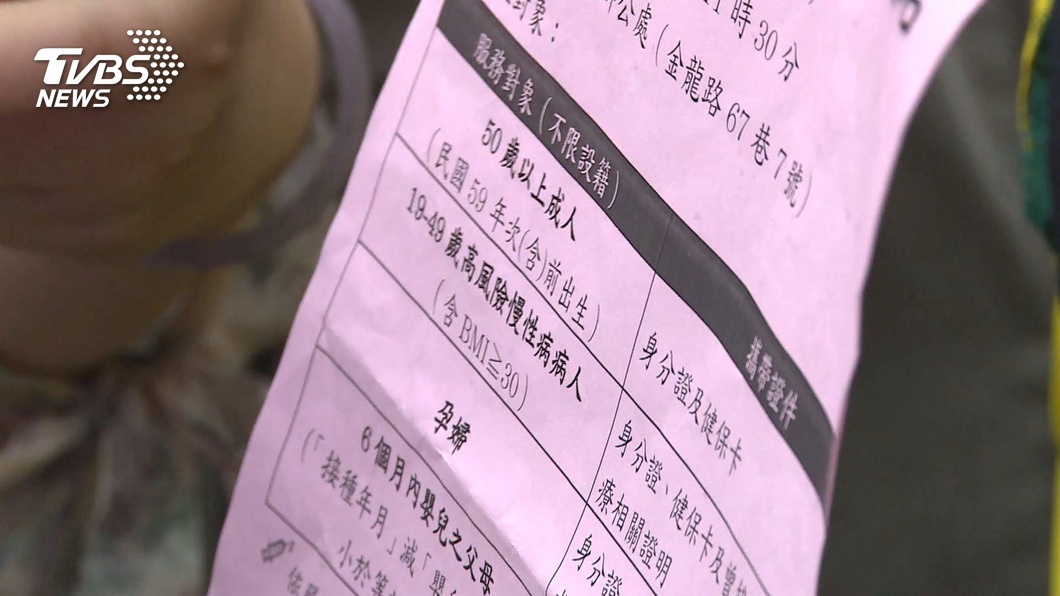 TVBS
NEWS
時30分
公處(金龍路67巷7號)
對象：
服務對象(不限設籍)
攜帶證件
50歲以上成人
(民國59年次(含)前出生)
身分證及健保卡
19-49歲高風險慢性病病人
(含BMI≧30)
身分證、健保卡及曾
療相關證明
孕婦
身分證
6個月內嬰兒之父母
(「接種年月」減「嬰
小於等